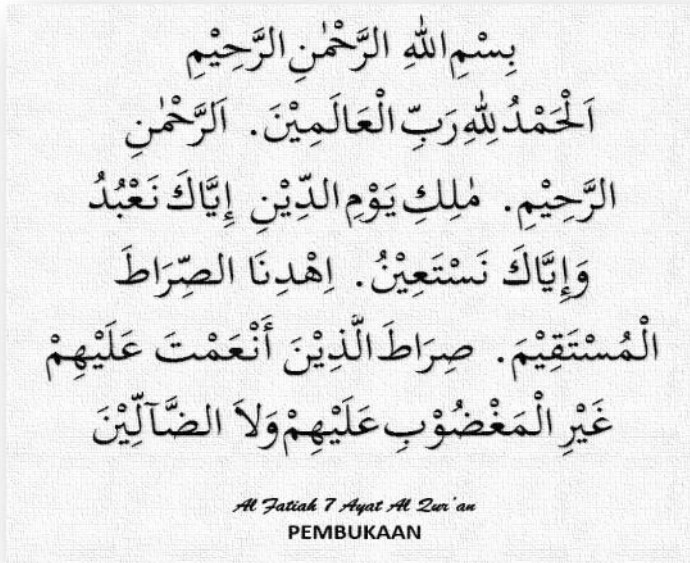 بِسْمِ اللهِ الرَّحْمٰنِ الرَّحِيْمِ
اَلْحَمْدُ لِلّٰهِ رَبِّ الْعَالَمِيْنَ. اَلرَّحْمٰنِ
الرَّحِيْمِ. مٰلِكِ يَوْمِ الدِّيْنِ إِيَّاكَ نَعْبُدُ
وَإِيَّاكَ نَسْتَعِيْنُ. اِهْدِنَا الصِّرَاطَ
الْمُسْتَقِيْمَ. صِرَاطَ الَّذِيْنَ أَنْعَمْتَ عَلَيْهِمْ
غَيْرِ الْمَغْضُوْبِ عَلَيْهِمْ وَلاَ الضَّآلِّيْنَ
Al Fatiah 7 Ayat Al Qur'an
PEMBUKAAN